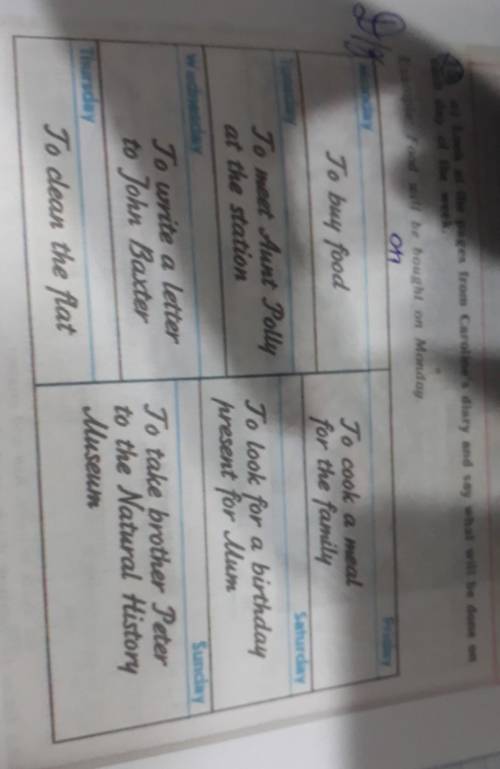 D/з
a) Look at the pages from Caroline's diary and say what will be done on
each day of the week.
Example: Food will be bought on Monday
on
Monday
To buy food
Tuesday
To meet Aunt Polly
at the station
Wednesday
To write a letter
to John Baxter
Thursday
To clean the flat
Friday
To cook a meal
for the family
Saturday
To look for a birthday
present for Mum
Sunday
To take brother Peter
to the Natural History
Museum